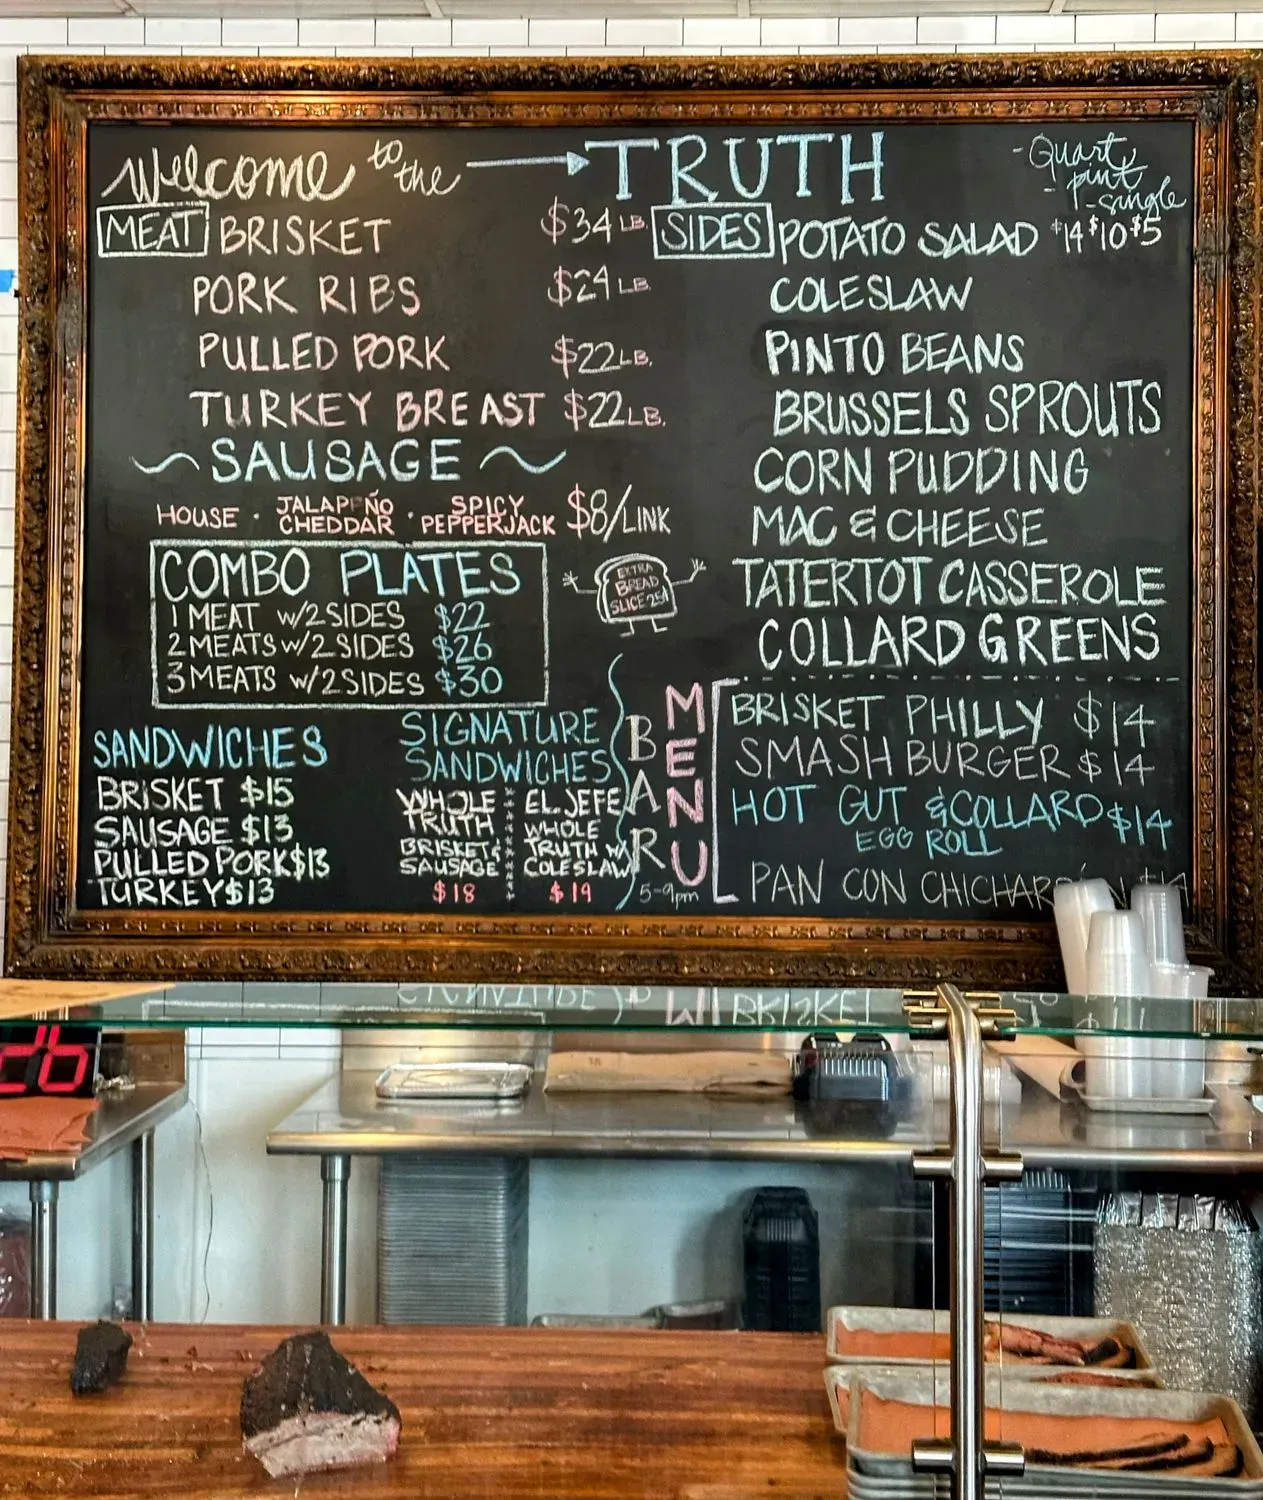 Welcome to the → TRUTH
- Quart
- pint
- single
MEAT BRISKET $34 LB.
PORK RIBS $24 LB.
PULLED PORK $22 LB.
TURKEY BREAST $22 LB.
~ SAUSAGE ~
HOUSE · JALAPEÑO CHEDDAR · SPICY PEPPERJACK $8/LINK
COMBO PLATES
1 MEAT w/2 SIDES $22
2 MEATS w/2 SIDES $26
3 MEATS w/2 SIDES $30
EXTRA
BREAD
SLICE 25¢
SIDES POTATO SALAD $14 $10 $5
COLESLAW
PINTO BEANS
BRUSSELS SPROUTS
CORN PUDDING
MAC & CHEESE
TATERTOT CASSEROLE
COLLARD GREENS
SANDWICHES
BRISKET $15
SAUSAGE $13
PULLED PORK $13
TURKEY $13
SIGNATURE
SANDWICHES
WHOLE
TRUTH
BRISKET &
SAUSAGE
$18
EL JEFE
WHOLE
TRUTH w/
COLESLAW
$19
BAR
MENU
5-9pm
BRISKET PHILLY $14
SMASH BURGER $14
HOT GUT & COLLARD $14
EGG ROLL
PAN CON CHICHARRÓN $14